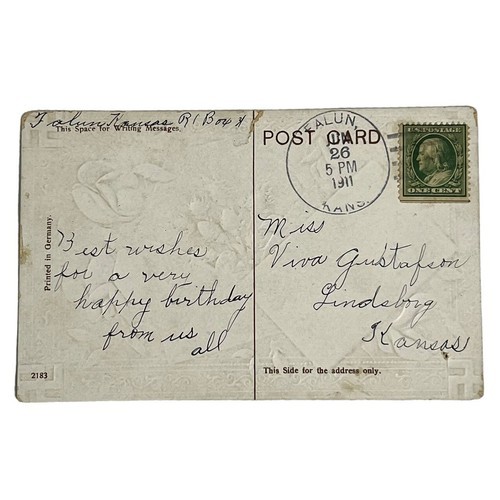 Falun Kansas R1 Box 4
This Space for Writing Messages.
POST CARD
FALUN,
JUN
26
5 PM
1911
KANS.
U.S. POSTAGE
ONE CENT
Printed in Germany.
Best wishes
for a very
happy birthday
from us
all
Miss
Viva Gustafson
Lindsborg
Kansas
2183
This Side for the address only.